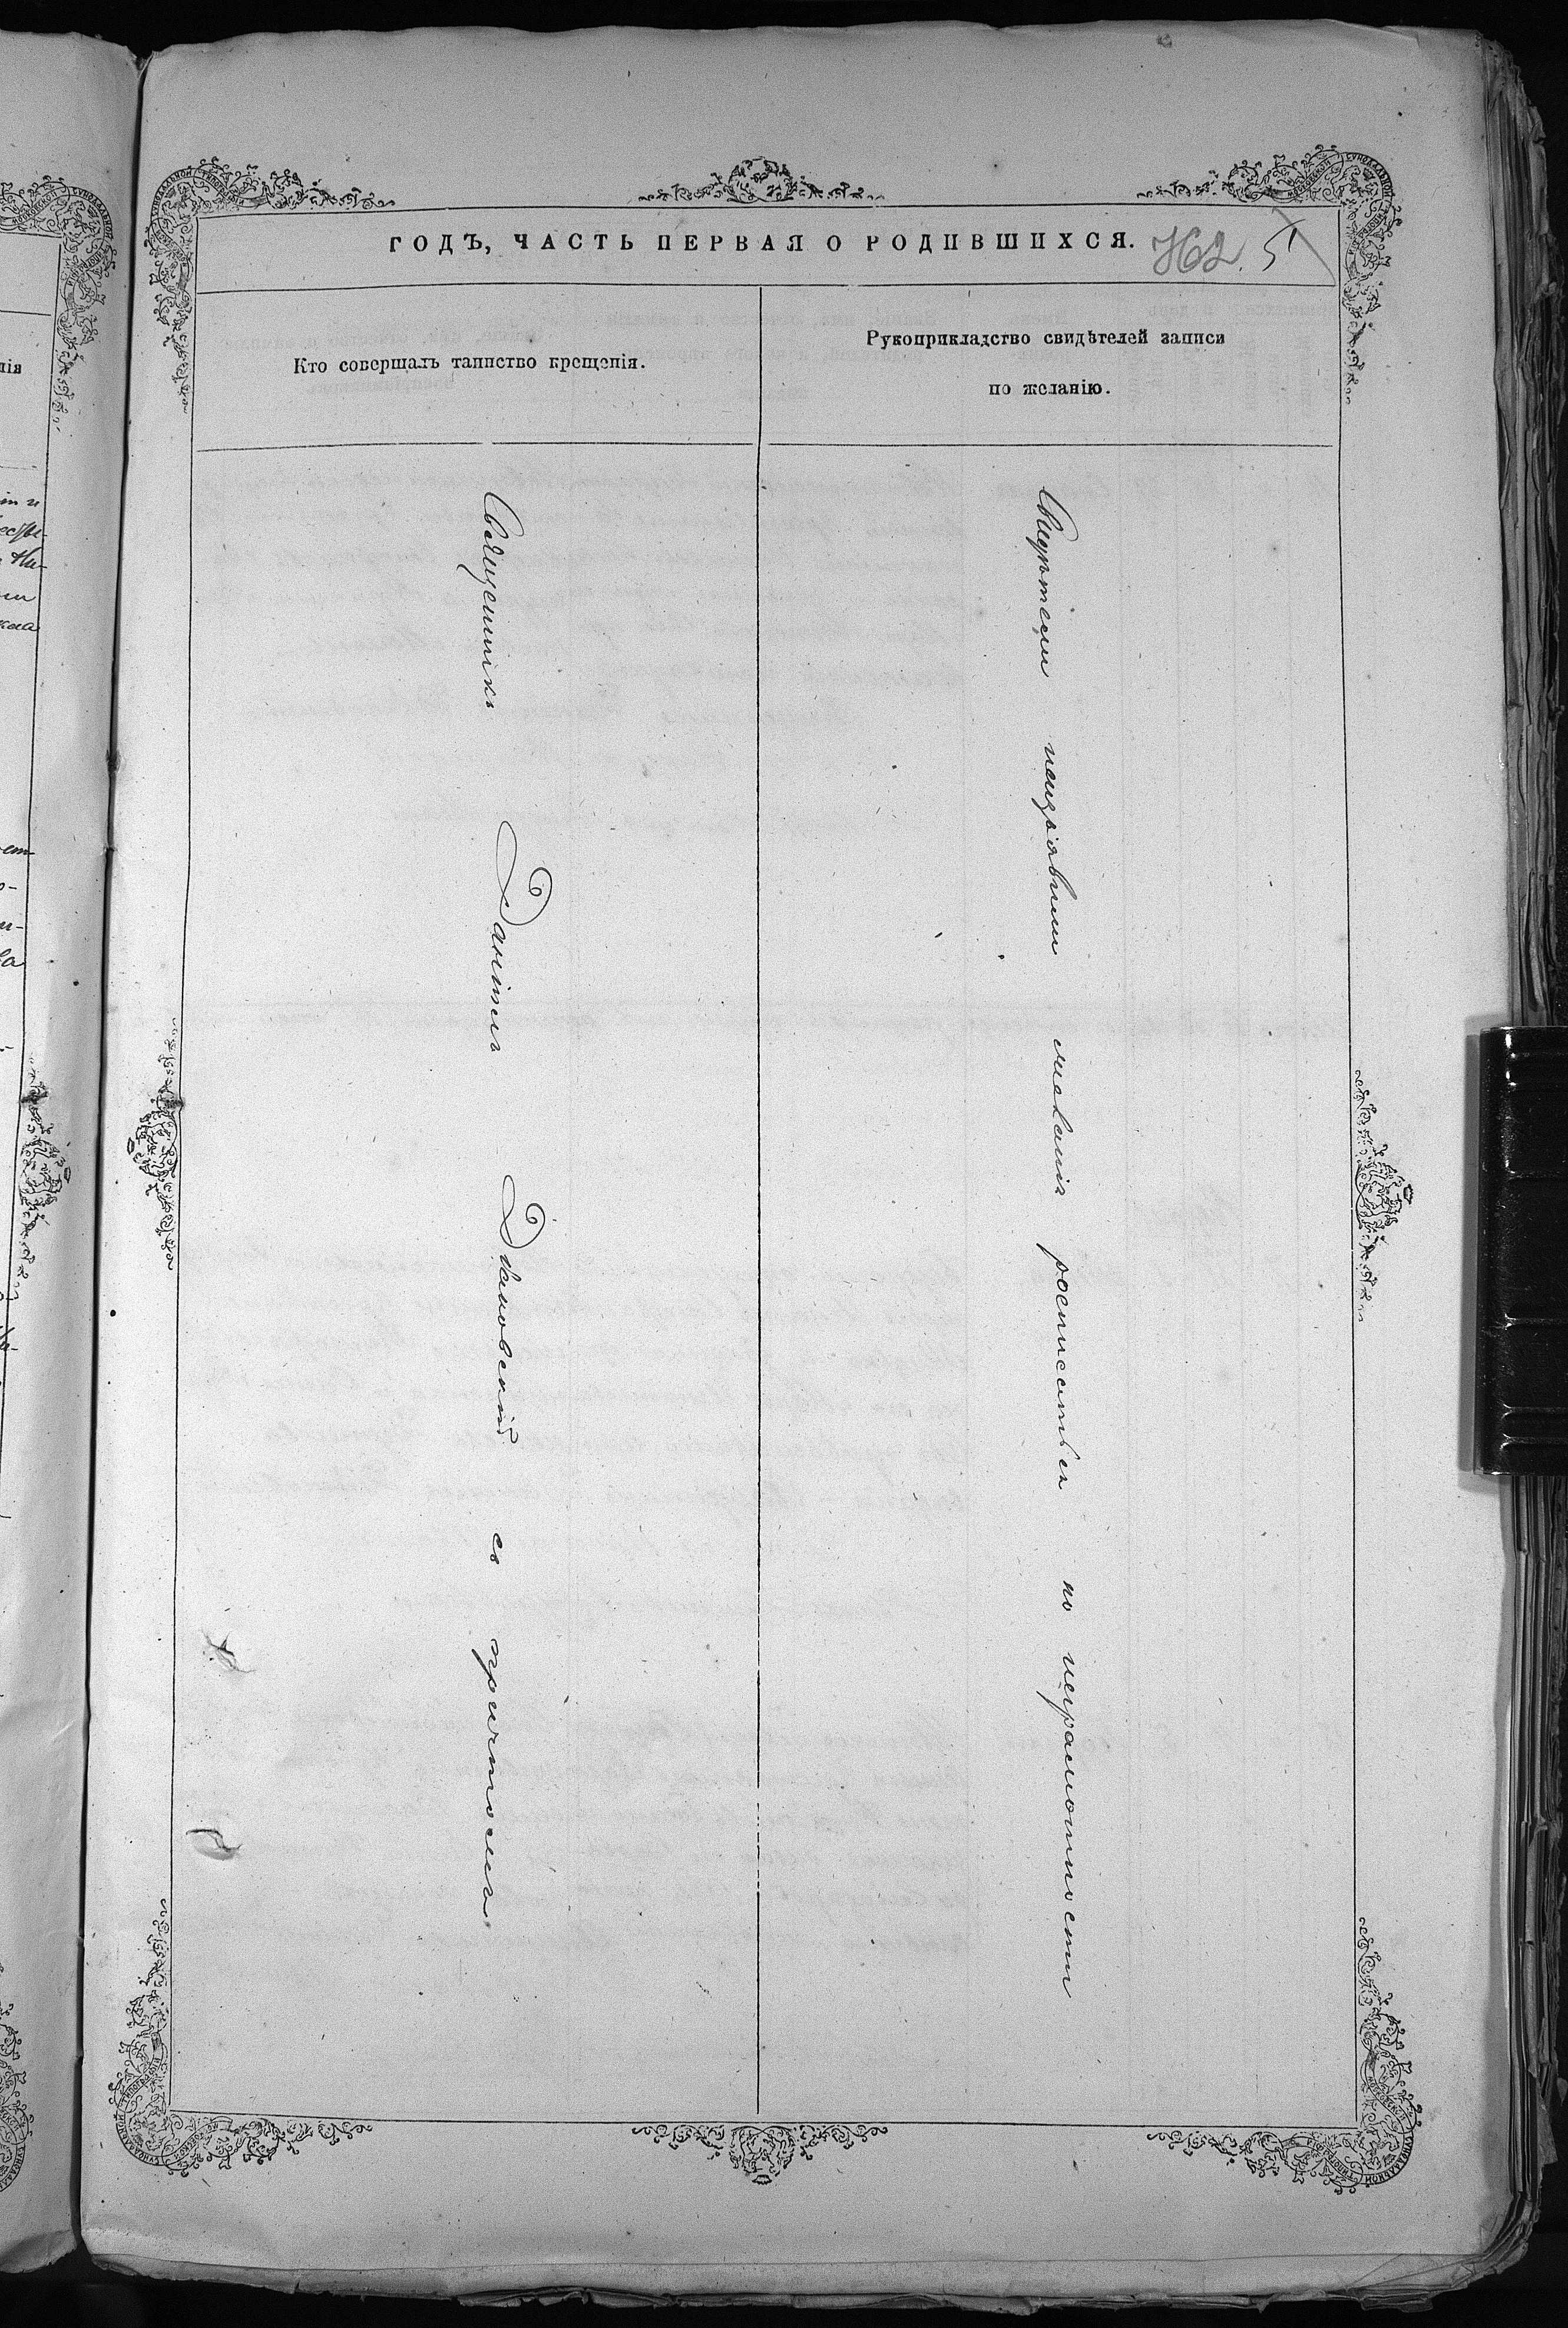 ГОДЪ, ЧАСТЬ ПЕРВАЯ О РОДИВШИХСЯ.
Кто совершалъ таинство крещенія.
Рукоприкладство свидѣтелей записи
по желанію.
Священникъ Даніилъ с причтомъ
Свидѣтели неизъявили желанія росписаться по неграмотности